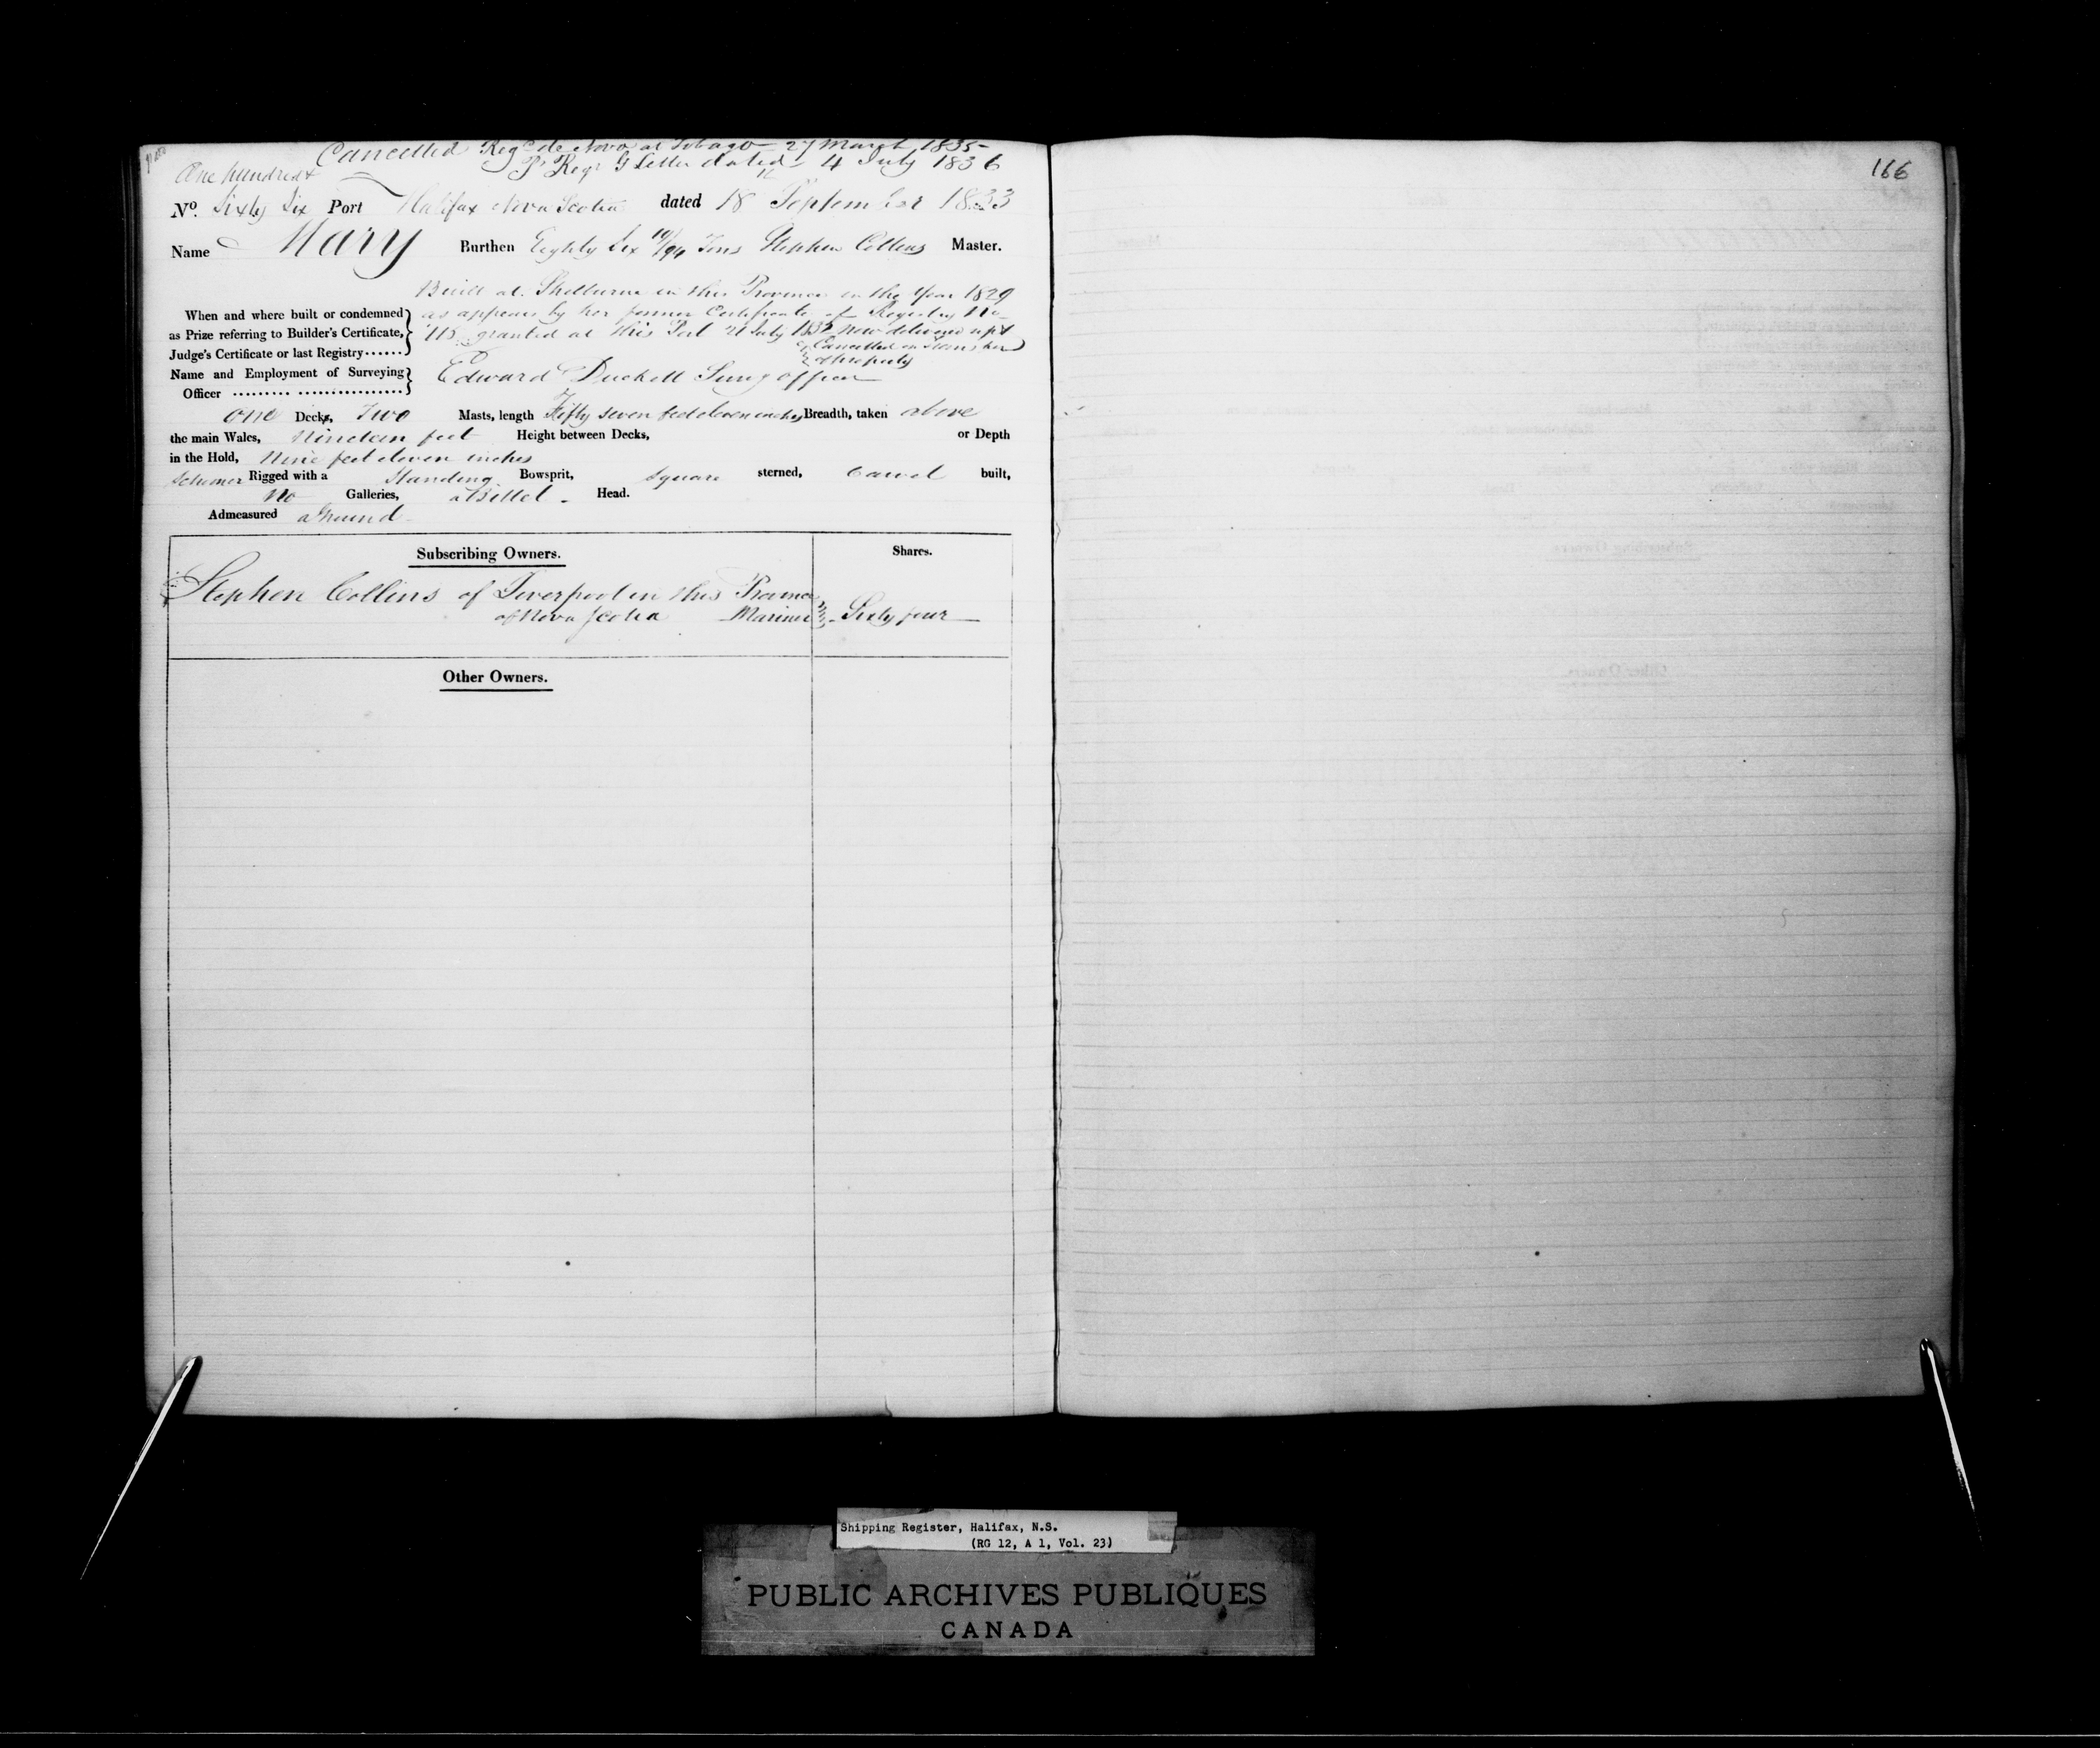 Cancelled Regd de Novo at Tobago 27 March 1835
Pr Regr G Letter dated 4 July 1836
One hundred &
No. Sixty Six Port Halifax Nova Scotia dated 18th September 1833
Name Mary Burthen Eighty Six 10/94 Tons Stephen Collins Master.
Built at Shelburne in this Province in the Year 1829
When and where built or condemned as appears by her former Certificate of Registry No
as Prize referring to Builder's Certificate, granted at this Port 21 July 1832 now delivered up &
Judge's Certificate or last Registry...... Cancelled
of property
Name and Employment of Surveying Edward Duckett Survg officer
Officer ......... ................
One Decks, Two Masts, length Fifty seven feet eleven inches Breadth, taken above
the main Wales, Nineteen feet Height between Decks, or Depth
in the Hold, Nine feet eleven inches
Schooner Rigged with a Standing Bowsprit, Square sterned, Carvel built,
No Galleries, a Billet Head.
Admeasured aground
Subscribing Owners. Shares.
Stephen Collins of Liverpool in this Province
of Nova Scotia Mariner Sixty four
Other Owners.
166
Shipping Register, Halifax, N.S.
(RG 12, A 1, Vol. 23)
PUBLIC ARCHIVES PUBLIQUES
CANADA